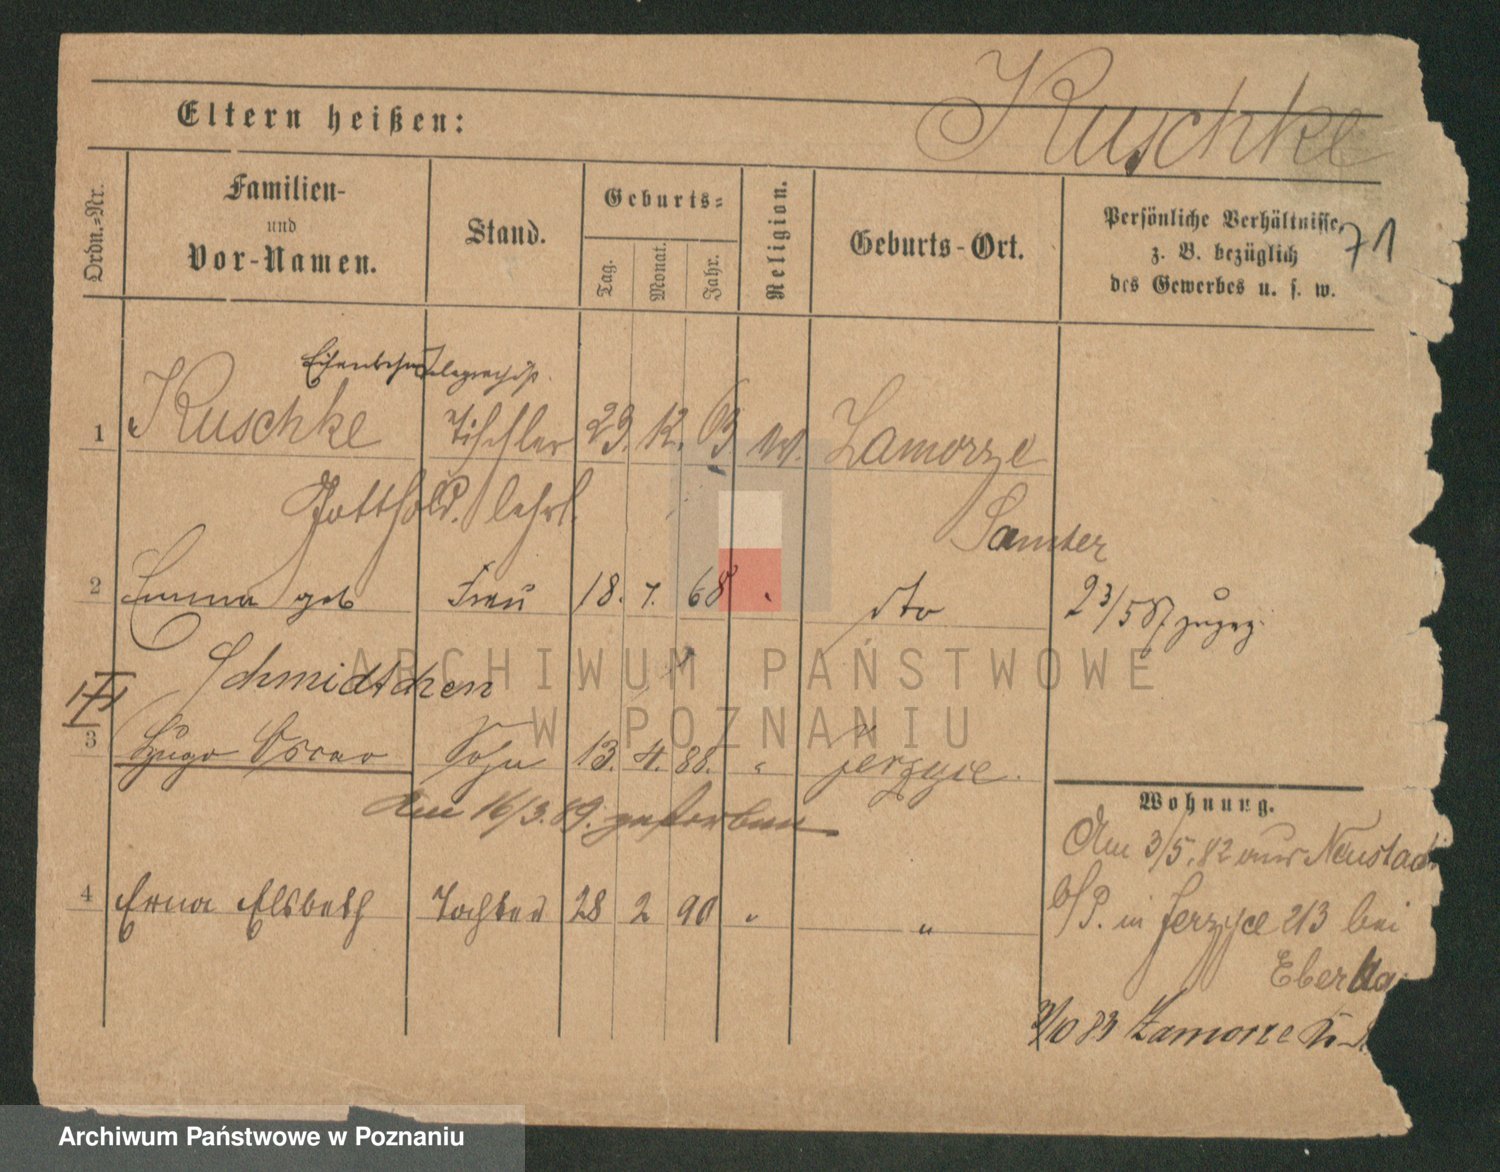 Kuschke
Eltern heißen:
Ordn.-Nr.
Familien-
und
Vor-Namen.
Stand.
Geburts-
Tag.
Monat.
Jahr.
Religion.
Geburts-Ort.
Persönliche Verhältnisse,
z. B. bezüglich
des Gewerbes u. s. w.
71
1 Kuschke Tischler 29. 12. 63 Zamorze
Gotthold. lehrl. Samter
2 Emma geb Frau 18. 7. 68 dto 23/5 87 zugez.
Schmidtchen
3 Hugo Oscar Sohn 13. 4. 88. " Jerzyce.
Am 16/3. 89. gestorben
4 Erna Elsbeth Tochter 28 2 90 " "
Wohnung.
Am 3/5. 82 aus Neustadt
b/P. in Jerzyce 213 bei
83 Zamorze
ARCHIWUM PAŃSTWOWE
W POZNANIU
Archiwum Państwowe w Poznaniu